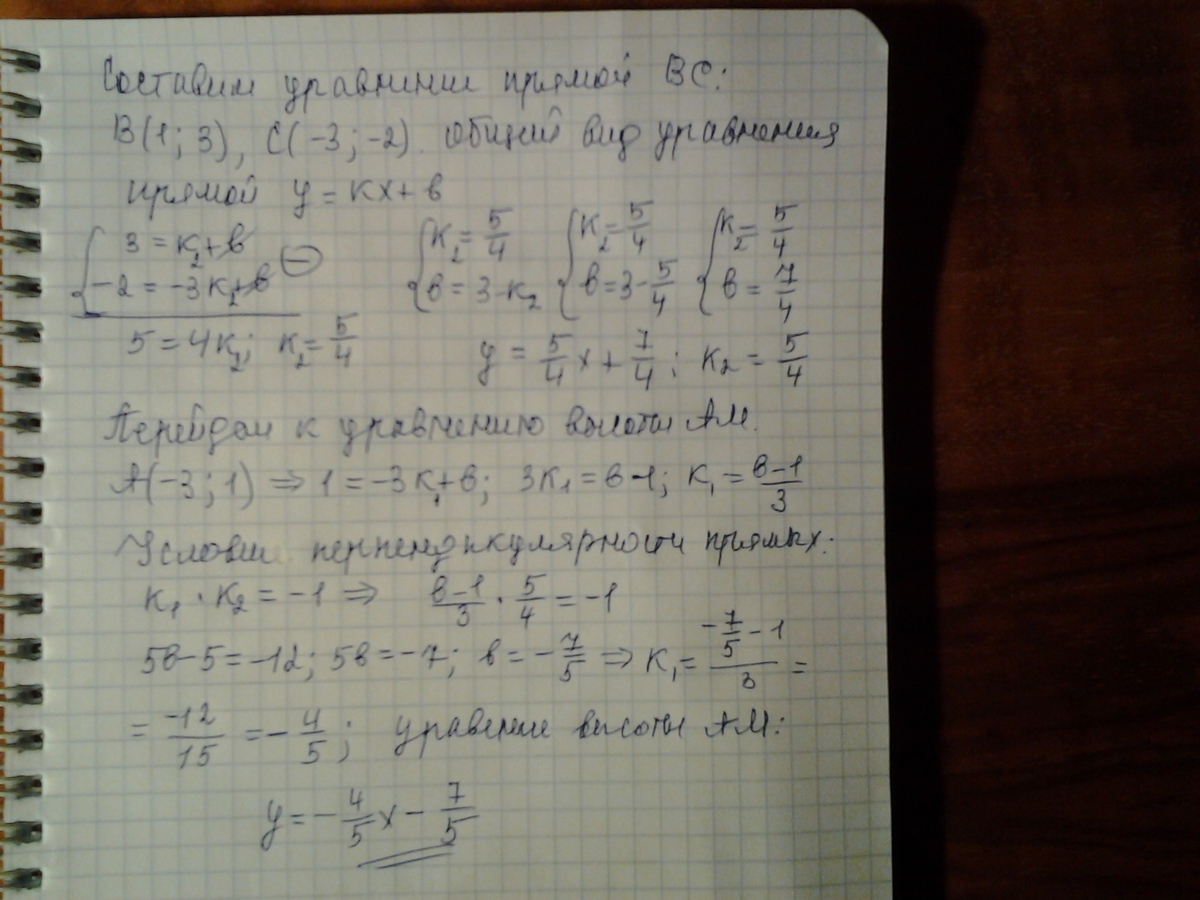 Составим уравнение прямой BC:
B(1; 3), C(-3; -2). Общий вид уравнения
прямой y = кx + в
{ 3 = к₂ + в
{ -2 = -3к₂ + в ⊖
{ к₂ = 5/4 { к₂ = 5/4 { к₂ = 5/4
{ в = 3 - к₂ { в = 3 - 5/4 { в = 7/4
5 = 4к₂; к₂ = 5/4 y = 5/4 x + 7/4; к₂ = 5/4
Перейдем к уравнению высоты AM.
A(-3; 1) ⇒ 1 = -3к₁ + в; 3к₁ = в - 1; к₁ = (в-1)/3
Условие перпендикулярности прямых:
к₁ · к₂ = -1 ⇒ (в-1)/3 · 5/4 = -1
5в - 5 = -12; 5в = -7; в = -7/5 ⇒ к₁ = (-7/5 - 1)/3 =
= -12/15 = -4/5; уравение высоты AM:
y = -4/5 x - 7/5